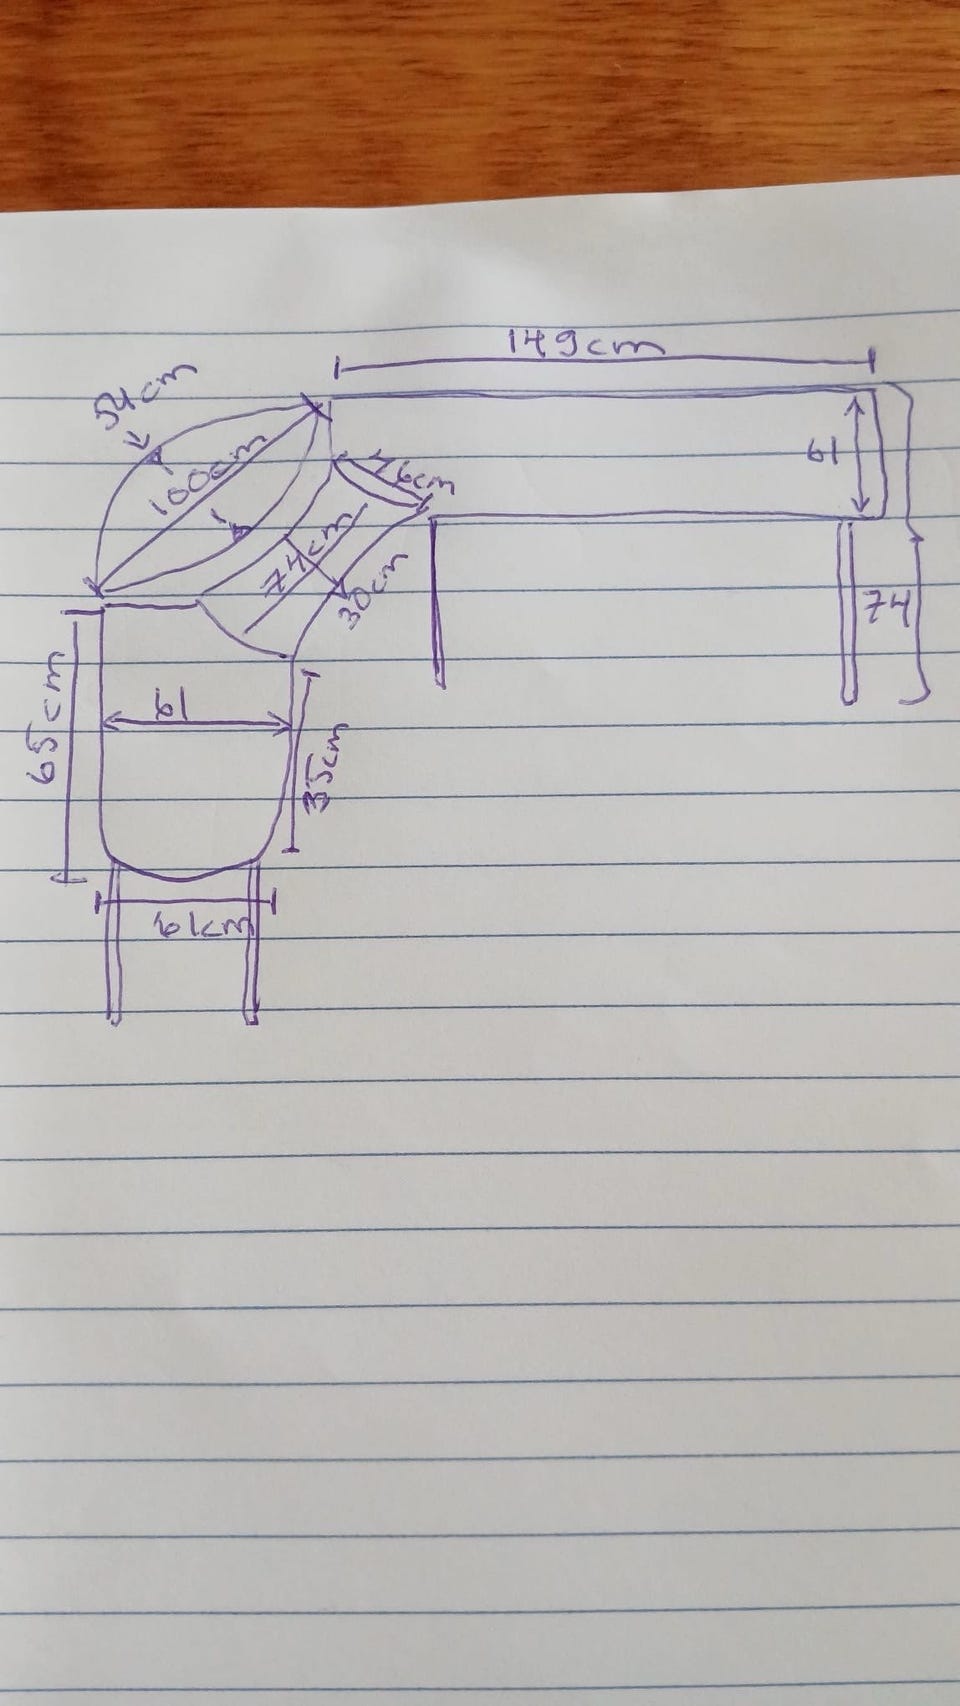 149cm
54cm
100cm
61
46cm
74cm
30cm
74
65cm
61
35cm
61cm